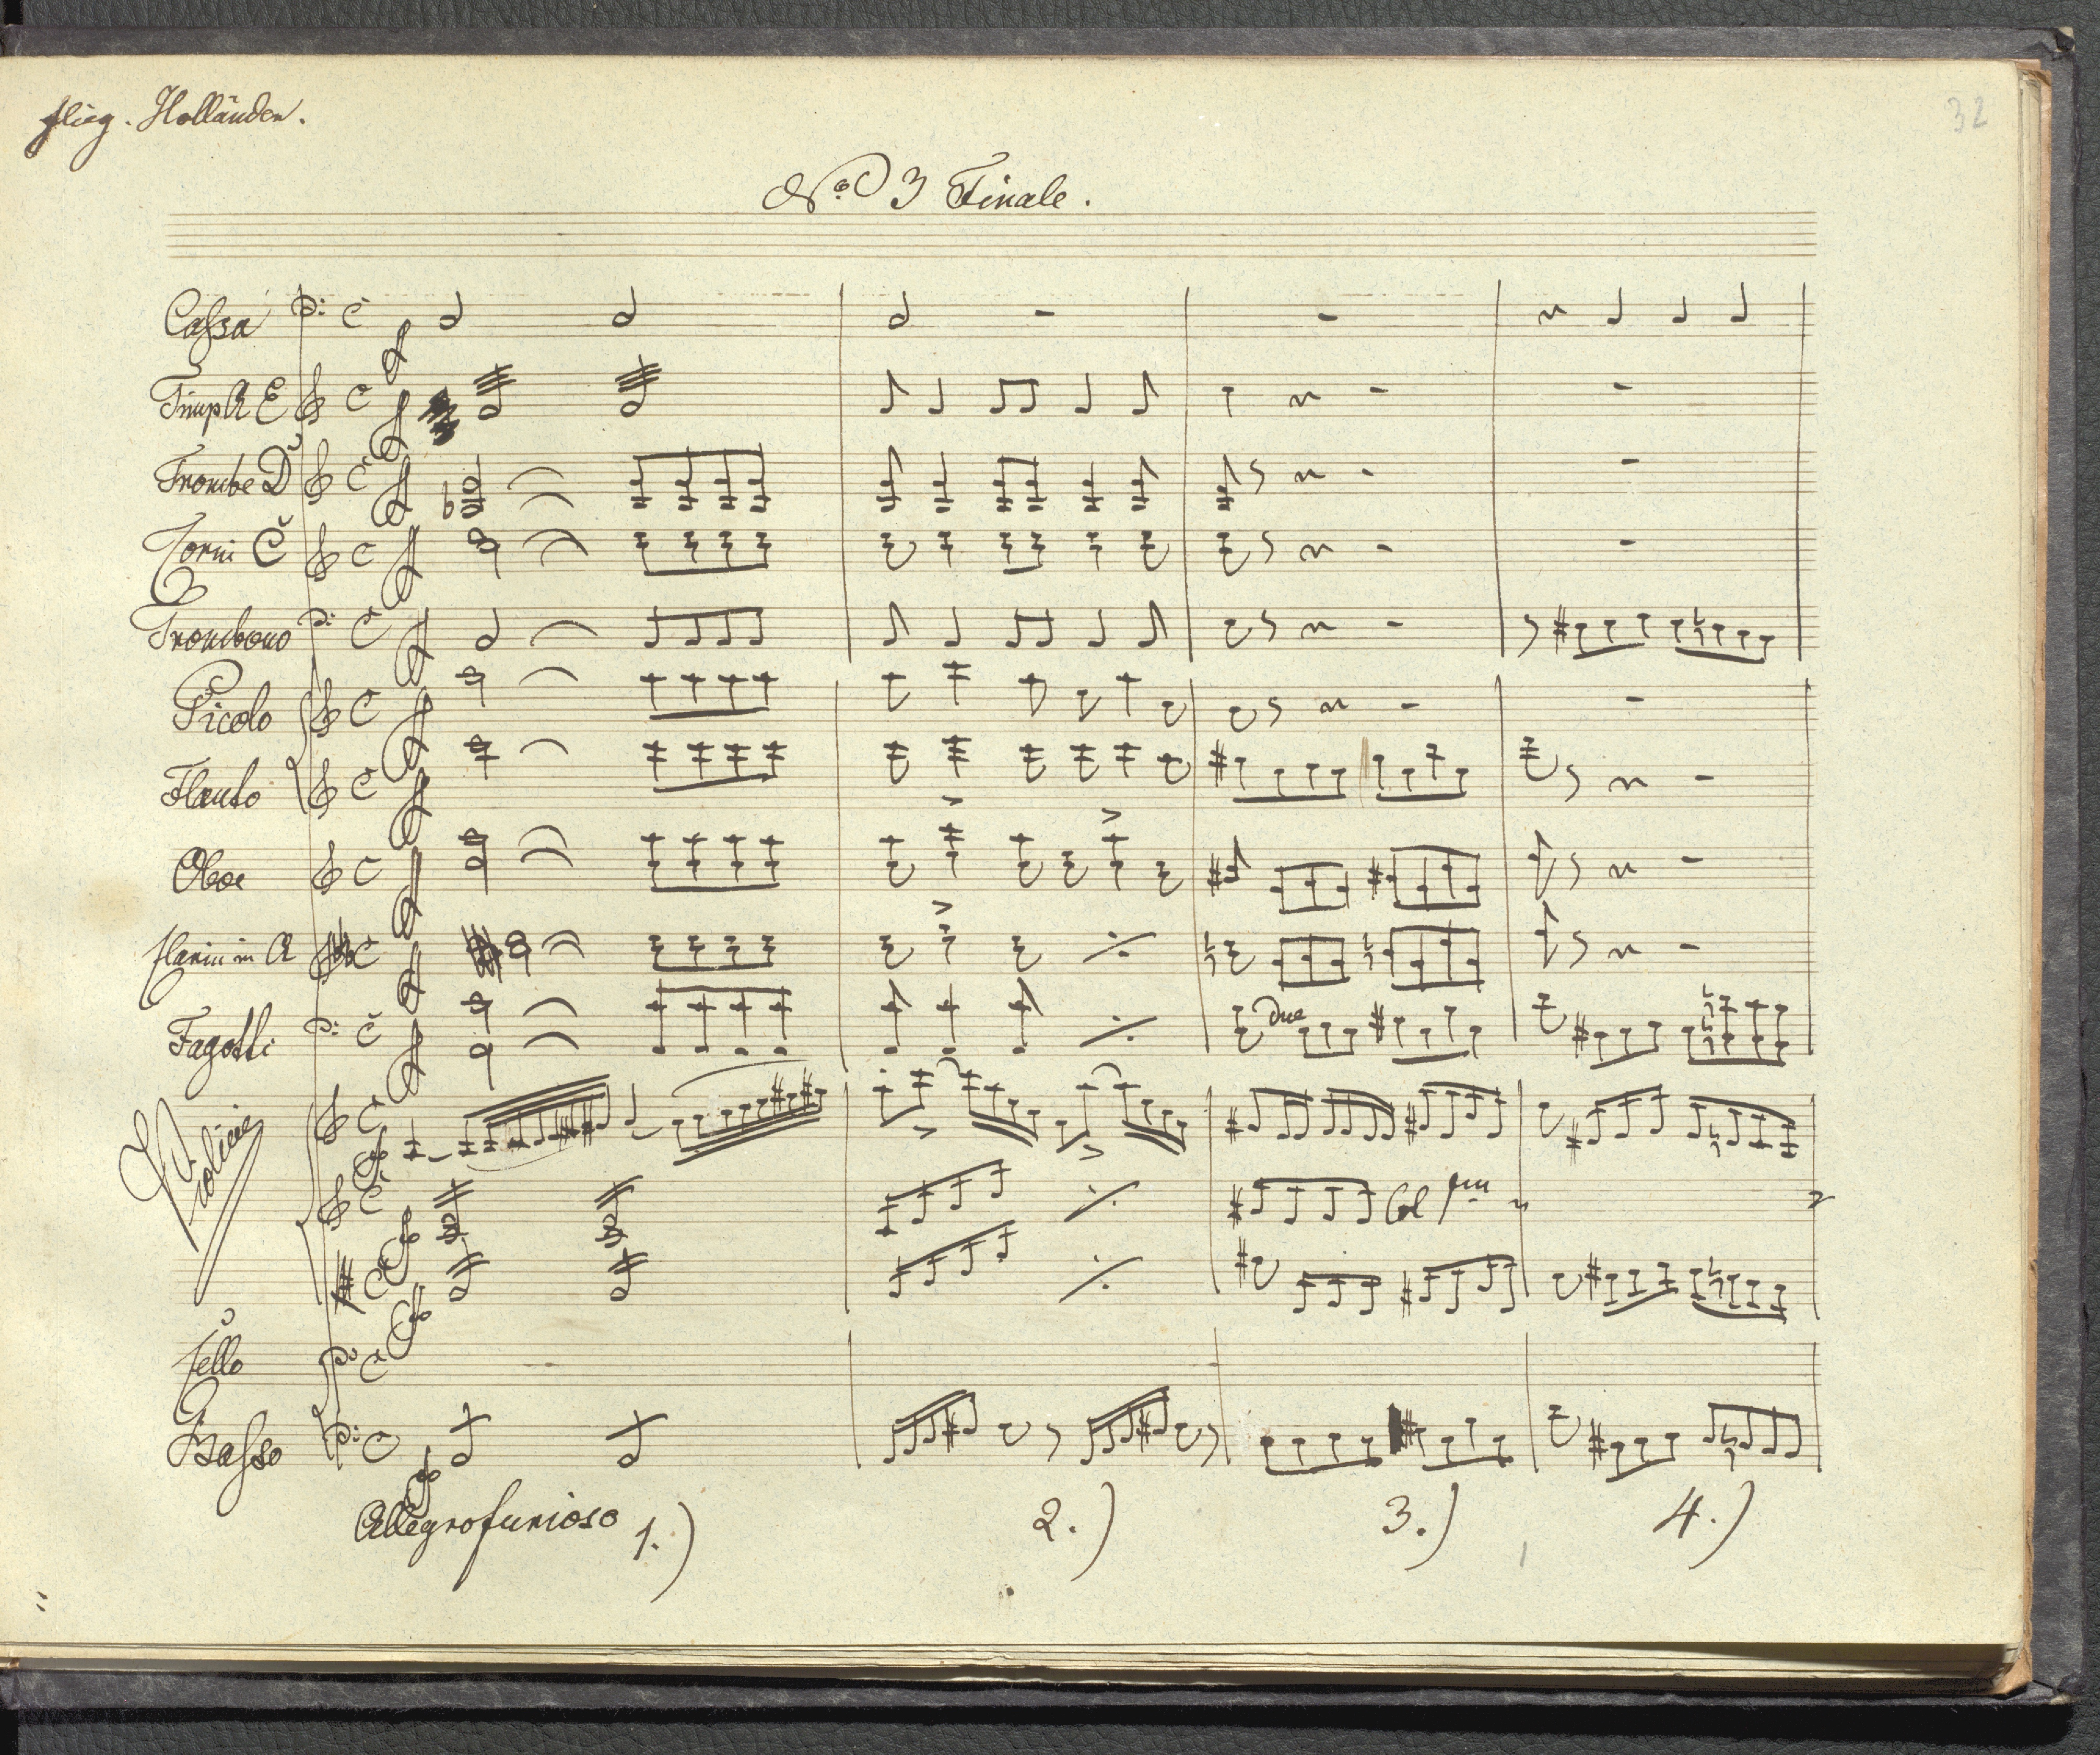 flieg. Holländer.
32
No 3 Finale.
Cassa
Timp A E
Trombe D
Corni C
Trombono
Picolo
Flauto
Oboe
Clarin in A
Fagotti
due
Violini
Col Imo
Cello
Basso
Allegro furioso 1.) 2.) 3.) 4.)